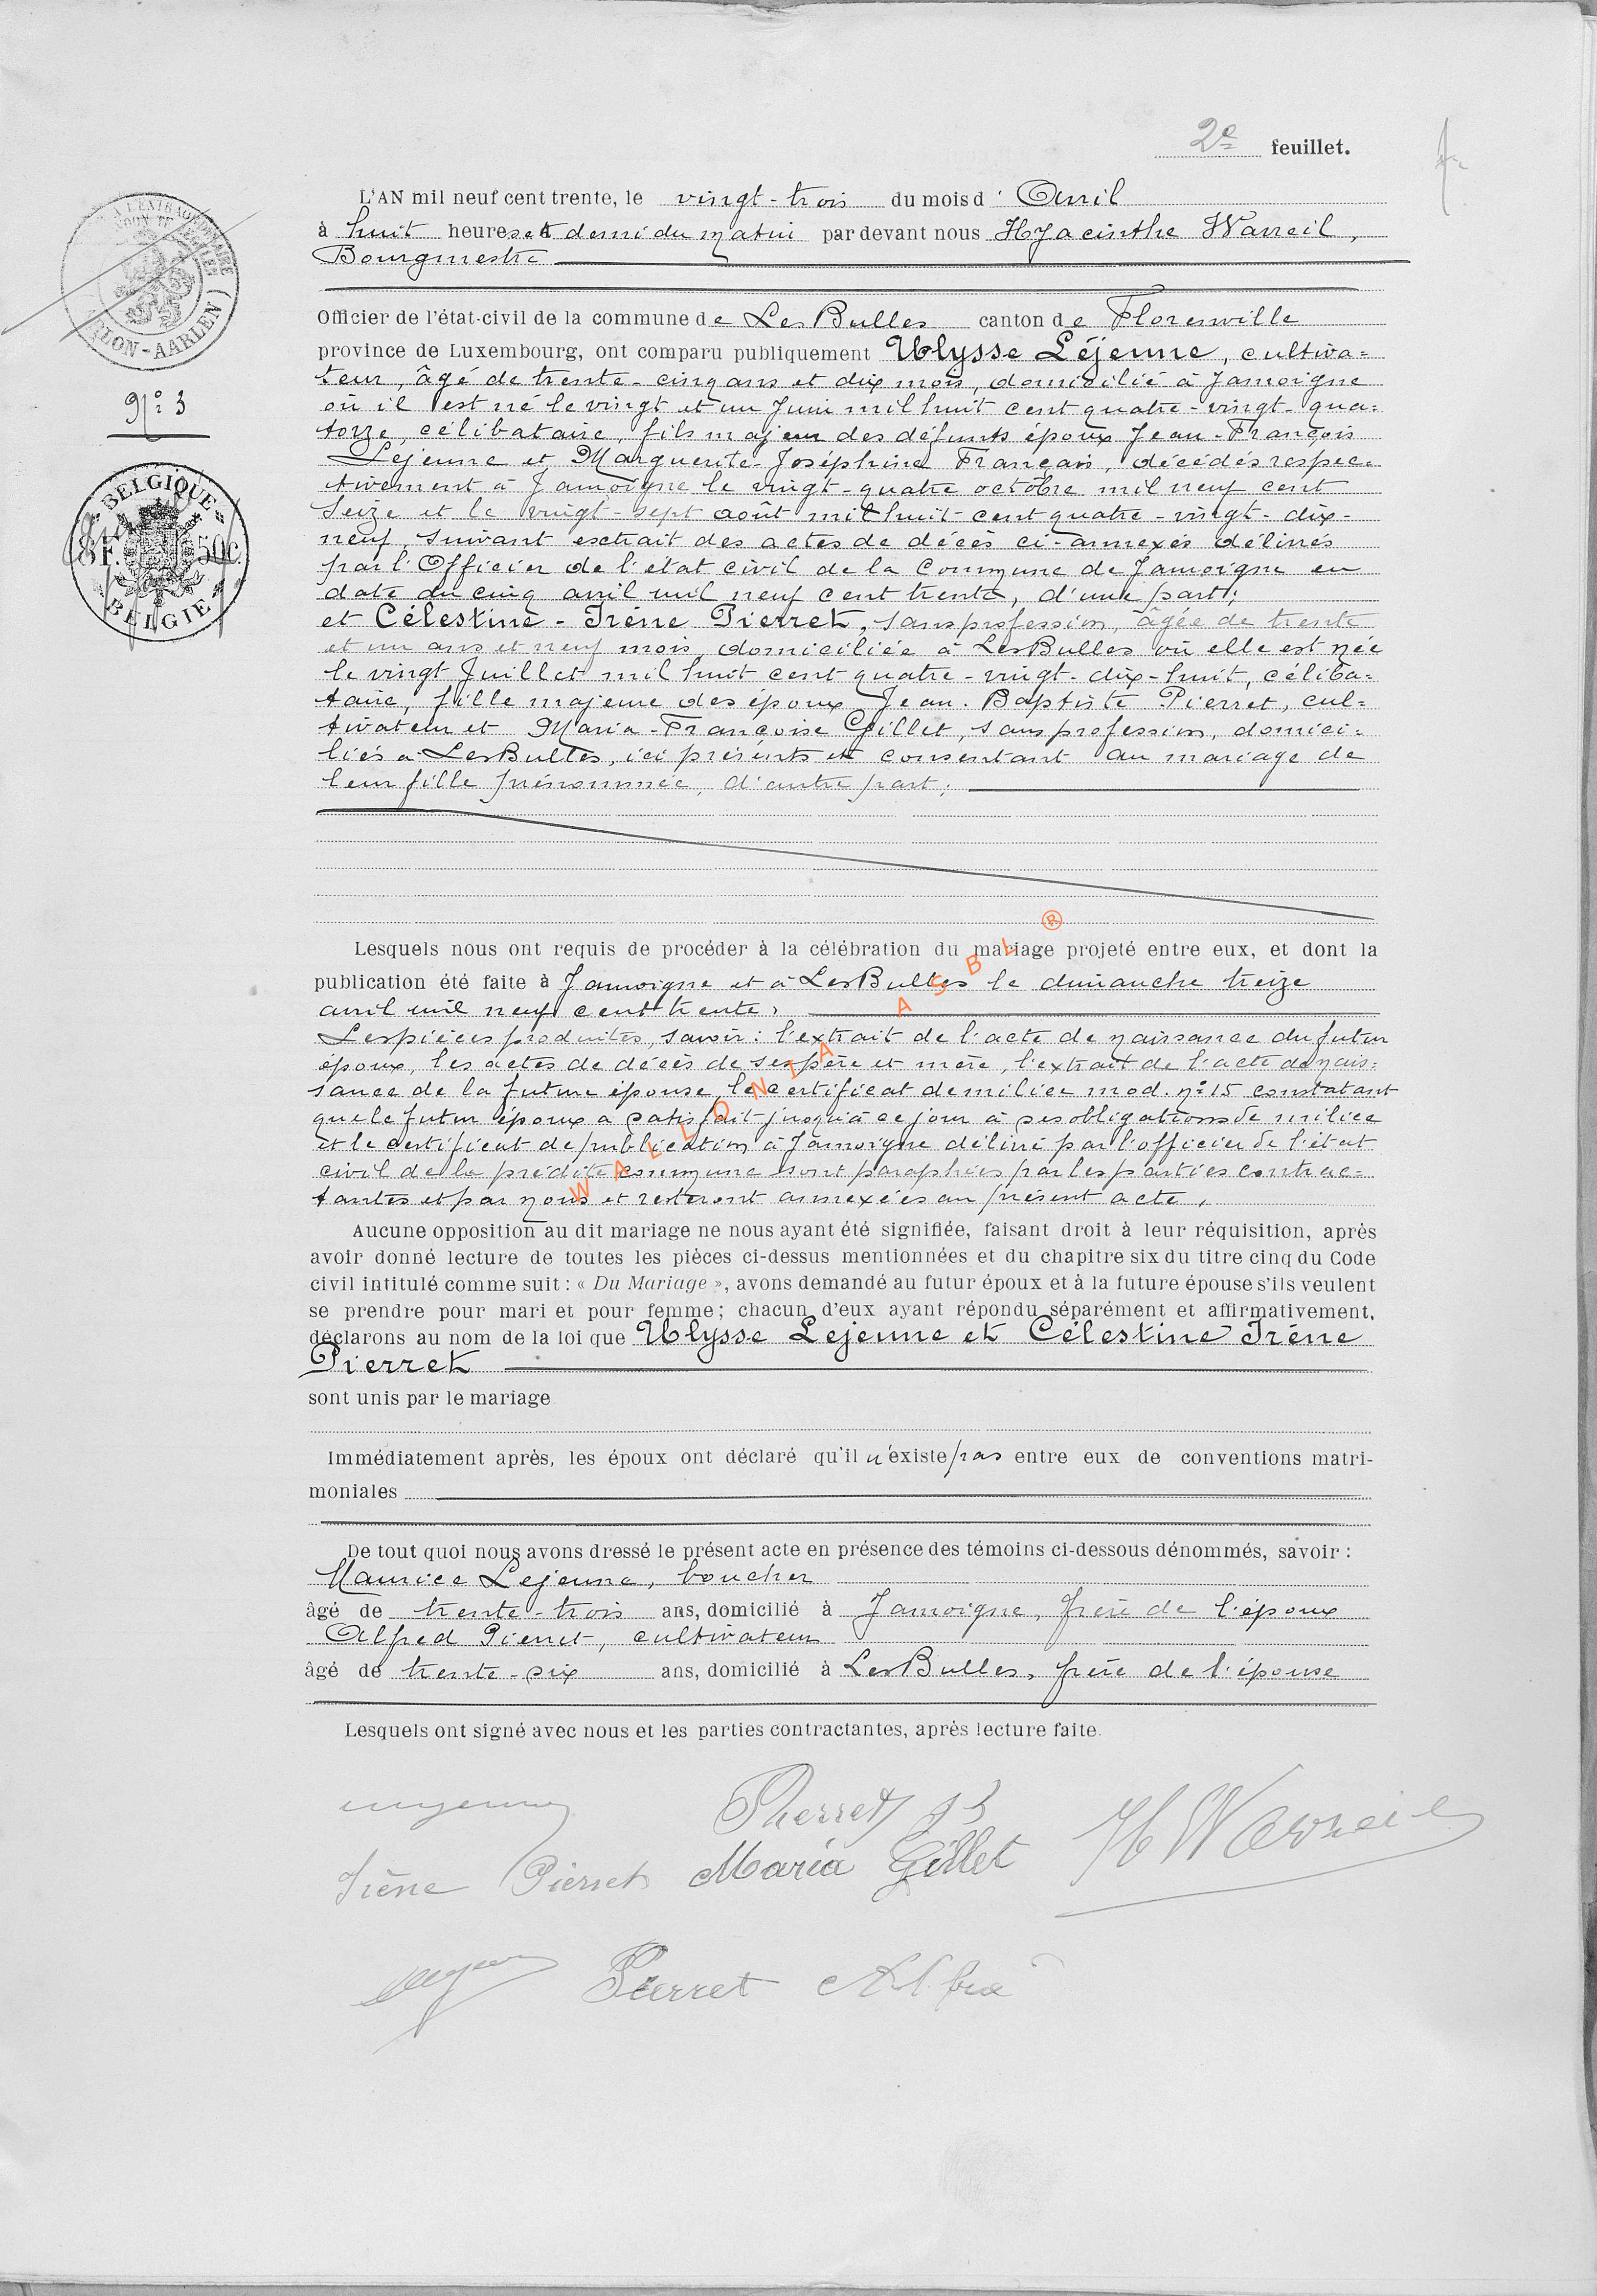 2e feuillet.
L'AN mil neuf cent trente, le vingt-trois du mois d' Avril
à huit heures et demi du matin par devant nous Hyacinthe Warreil,
Bourgmestre
Officier de l'état-civil de la commune de Les Bulles canton de Florenville
province de Luxembourg, ont comparu publiquement Ulysse Léjeune, cultiva=
teur, âgé de trente-cinq ans et dix mois, domicilié à Jamoigne
où il est né le vingt et un Juin mil huit cent quatre-vingt-qua=
torze, célibataire, fils majeur des défunts époux Jean-François
Lejeune et Marguerite-Joséphine Français, décédés respec=
tivement à Jamoigne le vingt-quatre octobre mil neuf cent
seize et le vingt-sept août mil huit cent quatre-vingt-dix-
neuf, suivant extrait des actes de décès ci-annexés délivrés
par l'Officier de l'état civil de la Commune de Jamoigne en
date du cinq avril mil neuf cent trente, d'une part;
et Célestine-Irène Pierret, sans profession, âgée de trente
et un ans et neuf mois, domiciliée à Les Bulles où elle est née
le vingt Juillet mil huit cent quatre-vingt-dix-huit, céliba=
taire, fille majeure des époux Jean-Baptiste Pierret, cul=
tivateur et Maria-Françoise Gillet, sans profession, domici=
liés à Les Bulles, ici présents et consentant au mariage de
leur fille prénommée, d'autre part;
Lesquels nous ont requis de procéder à la célébration du mariage projeté entre eux, et dont la
publication été faite à Jamoigne et à Les Bulles le dimanche treize
avril mil neuf cent trente,
Les pièces produites, savoir: l'extrait de l'acte de naissance du futur
époux, les actes de décès de ses père et mère, l'extrait de l'acte de nais=
sance de la future épouse, le certificat de milice mod. n° 15 constatant
que le futur époux a satisfait jusqu'à ce jour à ses obligations de milice
et le certificat de publication à Jamoigne délivré par l'officier de l'état
civil de la prédite commune sont paraphées par les parties contrac=
tantes et par nous et resteront annexées au présent acte,
Aucune opposition au dit mariage ne nous ayant été signifiée, faisant droit à leur réquisition, après
avoir donné lecture de toutes les pièces ci-dessus mentionnées et du chapitre six du titre cinq du Code
civil intitulé comme suit : « Du Mariage », avons demandé au futur époux et à la future épouse s'ils veulent
se prendre pour mari et pour femme; chacun d'eux ayant répondu séparément et affirmativement,
déclarons au nom de la loi que Ulysse Lejeune et Célestine Irène
Pierret
sont unis par le mariage
Immédiatement après, les époux ont déclaré qu'il n'existe pas entre eux de conventions matri-
moniales
De tout quoi nous avons dressé le présent acte en présence des témoins ci-dessous dénommés, savoir :
Maurice Lejeune, boucher
âgé de trente-trois ans, domicilié à Jamoigne, frère de l'époux
Alfred Pierret, cultivateur
âgé de trente-six ans, domicilié à Les Bulles, frère de l'épouse
Lesquels ont signé avec nous et les parties contractantes, après lecture faite.
Pierret JB
H Warreil
Irène Pierret Maria Gillet
Pierret
N° 3
ARLON-AARLEN
BELGIQUE
8 F. 50 c.
BELGIE
WALLONIA ASBL ®